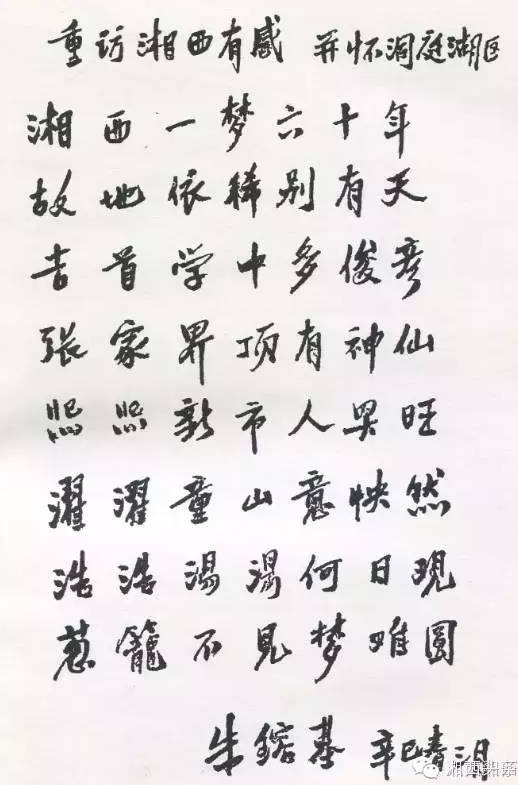 重访湘西有感 并怀洞庭湖区
湘西一梦六十年
故地依稀别有天
吉首学中多俊彦
张家界顶有神仙
熙熙新市人兴旺
濯濯童山意怏然
浩浩湯湯何日現
葱籠不見梦难圆
朱鎔基 辛巳春
湘西